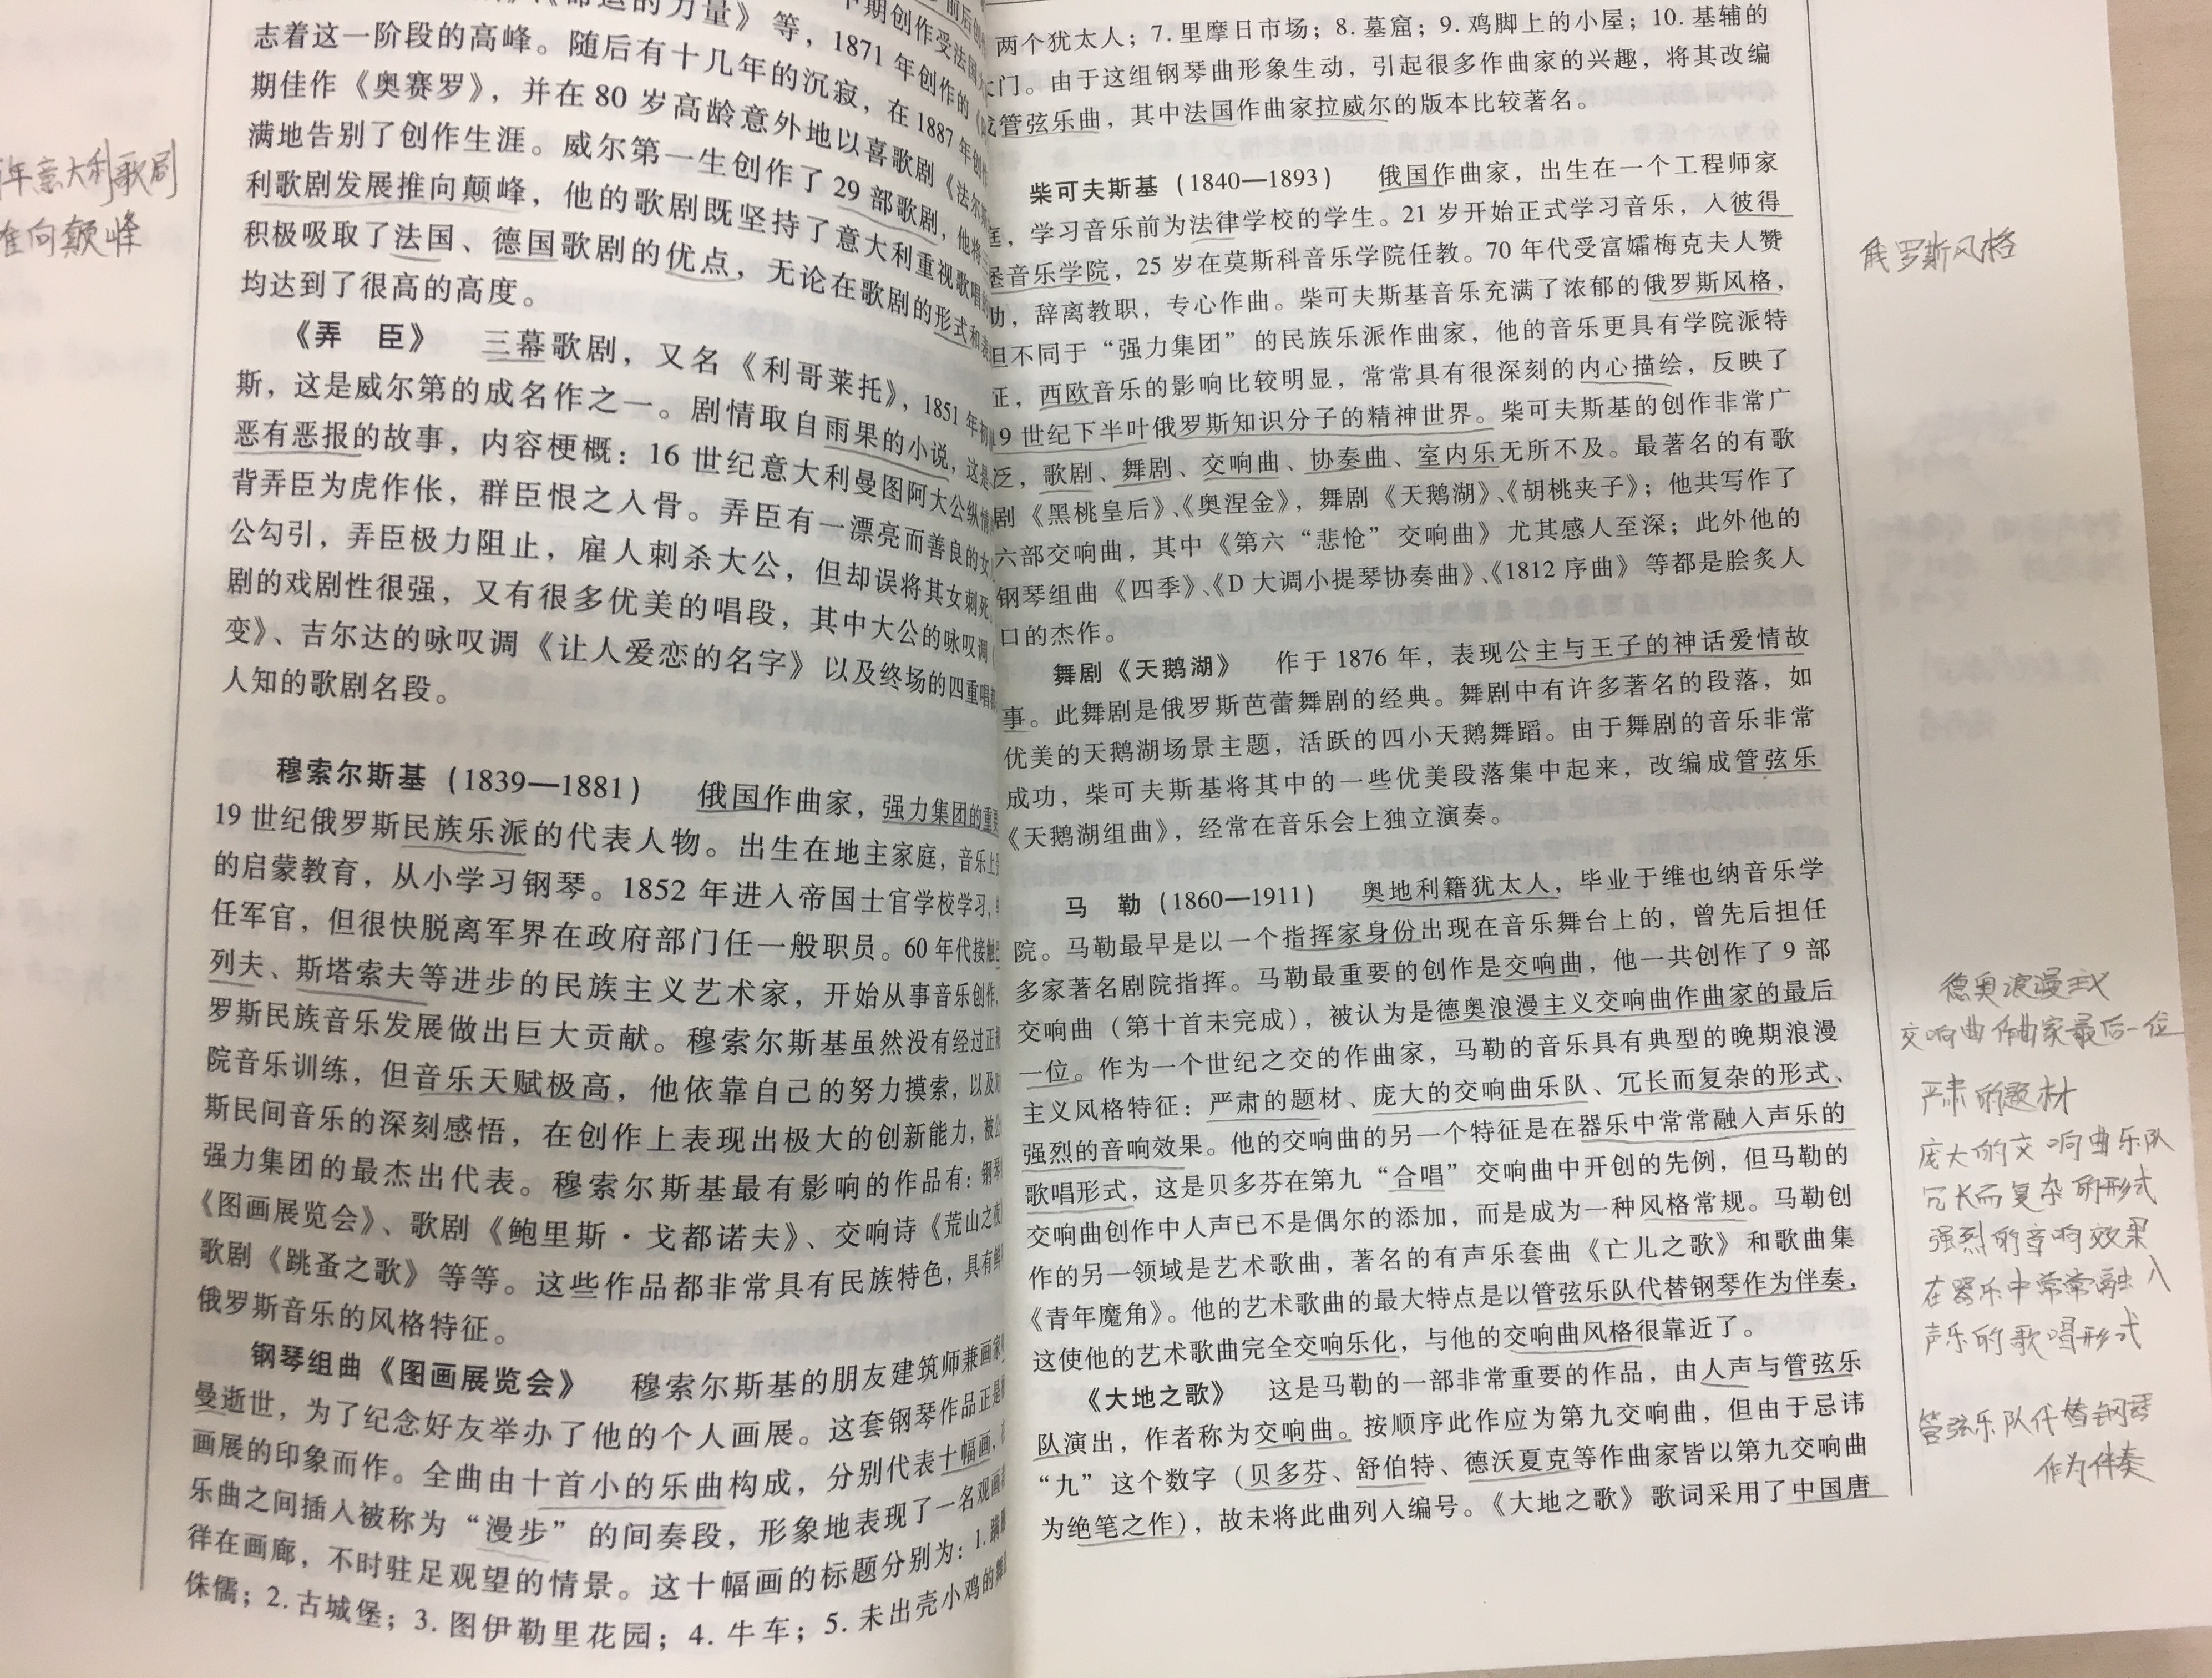 《命运的力量》等，1871 年创作的
志着这一阶段的高峰。随后有十几年的沉寂，在 1887 年创作
期佳作《奥赛罗》，并在 80 岁高龄意外地以喜歌剧《法尔斯
满地告别了创作生涯。威尔第一生创作了 29 部歌剧，他将
利歌剧发展推向颠峰，他的歌剧既坚持了意大利重视歌唱的
积极吸取了法国、德国歌剧的优点，无论在歌剧的形式和
均达到了很高的高度。
《弄 臣》 三幕歌剧，又名《利哥莱托》，1851 年初
斯，这是威尔第的成名作之一。剧情取自雨果的小说，这是
恶有恶报的故事，内容梗概：16 世纪意大利曼图阿大公纵情
背弄臣为虎作伥，群臣恨之入骨。弄臣有一漂亮而善良的女
公勾引，弄臣极力阻止，雇人刺杀大公，但却误将其女刺死
剧的戏剧性很强，又有很多优美的唱段，其中大公的咏叹调
变》、吉尔达的咏叹调《让人爱恋的名字》以及终场的四重唱都
人知的歌剧名段。
穆索尔斯基（1839—1881） 俄国作曲家，强力集团的重
19 世纪俄罗斯民族乐派的代表人物。出生在地主家庭，音乐上
的启蒙教育，从小学习钢琴。1852 年进入帝国士官学校学习，
任军官，但很快脱离军界在政府部门任一般职员。60 年代接触
列夫、斯塔索夫等进步的民族主义艺术家，开始从事音乐创作，
罗斯民族音乐发展做出巨大贡献。穆索尔斯基虽然没有经过正
院音乐训练，但音乐天赋极高，他依靠自己的努力摸索，以及
斯民间音乐的深刻感悟，在创作上表现出极大的创新能力，被
强力集团的最杰出代表。穆索尔斯基最有影响的作品有：钢琴
《图画展览会》、歌剧《鲍里斯·戈都诺夫》、交响诗《荒山之夜
歌剧《跳蚤之歌》等等。这些作品都非常具有民族特色，具有鲜
俄罗斯音乐的风格特征。
钢琴组曲《图画展览会》 穆索尔斯基的朋友建筑师兼画家
曼逝世，为了纪念好友举办了他的个人画展。这套钢琴作品正是
画展的印象而作。全曲由十首小的乐曲构成，分别代表十幅画，
乐曲之间插入被称为“漫步”的间奏段，形象地表现了一名观画
徉在画廊，不时驻足观望的情景。这十幅画的标题分别为：1.
侏儒；2. 古城堡；3. 图伊勒里花园；4. 牛车；5. 未出壳小鸡的舞
年意大利歌剧
推向颠峰
两个犹太人；7. 里摩日市场；8. 墓窟；9. 鸡脚上的小屋；10. 基辅的
大门。由于这组钢琴曲形象生动，引起很多作曲家的兴趣，将其改编
成管弦乐曲，其中法国作曲家拉威尔的版本比较著名。
柴可夫斯基（1840—1893） 俄国作曲家，出生在一个工程师家
庭，学习音乐前为法律学校的学生。21 岁开始正式学习音乐，入彼得
堡音乐学院，25 岁在莫斯科音乐学院任教。70 年代受富孀梅克夫人赞
助，辞离教职，专心作曲。柴可夫斯基音乐充满了浓郁的俄罗斯风格，
但不同于“强力集团”的民族乐派作曲家，他的音乐更具有学院派特
征，西欧音乐的影响比较明显，常常具有很深刻的内心描绘，反映了
19 世纪下半叶俄罗斯知识分子的精神世界。柴可夫斯基的创作非常广
泛，歌剧、舞剧、交响曲、协奏曲、室内乐无所不及。最著名的有歌
剧《黑桃皇后》、《奥涅金》，舞剧《天鹅湖》、《胡桃夹子》；他共写作了
六部交响曲，其中《第六“悲怆”交响曲》尤其感人至深；此外他的
钢琴组曲《四季》、《D 大调小提琴协奏曲》、《1812 序曲》等都是脍炙人
口的杰作。
舞剧《天鹅湖》 作于 1876 年，表现公主与王子的神话爱情故
事。此舞剧是俄罗斯芭蕾舞剧的经典。舞剧中有许多著名的段落，如
优美的天鹅湖场景主题，活跃的四小天鹅舞蹈。由于舞剧的音乐非常
成功，柴可夫斯基将其中的一些优美段落集中起来，改编成管弦乐
《天鹅湖组曲》，经常在音乐会上独立演奏。
马 勒（1860—1911） 奥地利籍犹太人，毕业于维也纳音乐学
院。马勒最早是以一个指挥家身份出现在音乐舞台上的，曾先后担任
多家著名剧院指挥。马勒最重要的创作是交响曲，他一共创作了 9 部
交响曲（第十首未完成），被认为是德奥浪漫主义交响曲作曲家的最后
一位。作为一个世纪之交的作曲家，马勒的音乐具有典型的晚期浪漫
主义风格特征：严肃的题材、庞大的交响曲乐队、冗长而复杂的形式、
强烈的音响效果。他的交响曲的另一个特征是在器乐中常常融入声乐的
歌唱形式，这是贝多芬在第九“合唱”交响曲中开创的先例，但马勒的
交响曲创作中人声已不是偶尔的添加，而是成为一种风格常规。马勒创
作的另一领域是艺术歌曲，著名的有声乐套曲《亡儿之歌》和歌曲集
《青年魔角》。他的艺术歌曲的最大特点是以管弦乐队代替钢琴作为伴奏，
这使他的艺术歌曲完全交响乐化，与他的交响曲风格很靠近了。
《大地之歌》 这是马勒的一部非常重要的作品，由人声与管弦乐
队演出，作者称为交响曲。按顺序此作应为第九交响曲，但由于忌讳
“九”这个数字（贝多芬、舒伯特、德沃夏克等作曲家皆以第九交响曲
为绝笔之作），故未将此曲列入编号。《大地之歌》歌词采用了中国唐
俄罗斯风格
德奥浪漫主义
交响曲作曲家最后一位
严肃的题材
庞大的交响曲乐队
冗长而复杂的形式
强烈的音响效果
在器乐中常常融入
声乐的歌唱形式
管弦乐队代替钢琴
作为伴奏